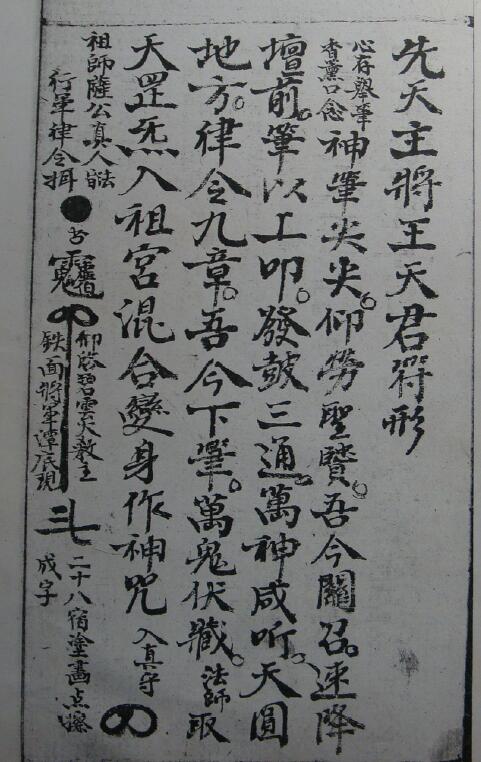 先天主將王天君符形
心存舉筆
香薰口念
神筆尖尖。仰勞聖賢。吾今關召。速降
壇前。筆以工叩。發鼓三通。萬神咸听。天圓
地方。律令九章。吾今下筆。萬鬼伏藏。法師取
天罡炁入祖宮混合變身作神咒 入真字
祖師薩公真人
行筆律令
仰啓碧雲大教主
鉄面將軍潭底現
二十八宿塗畫点
成字